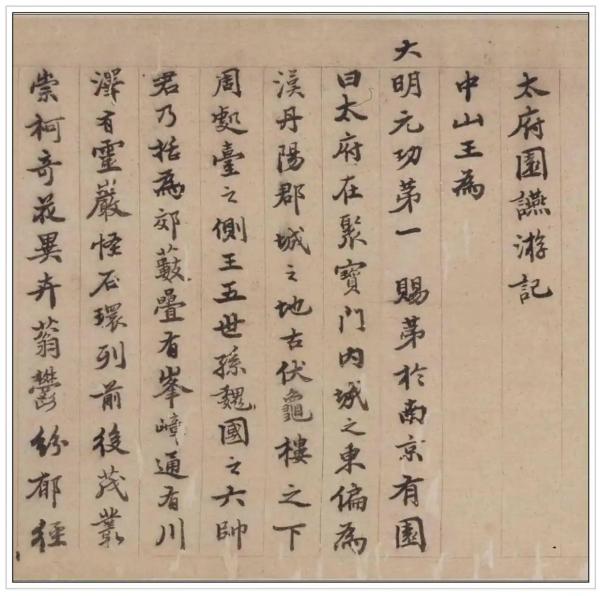 太府園讌游記
中山王為
大明元功第一 賜第於南京有園
曰太府在聚寶門內城之東偏為
漢丹陽郡城之地古伏龜樓之下
周處臺之側王五世孫魏國之大帥
君乃括為郊藪疊有峯嶂通有川
澤有靈巖怪石環列前後茂叢
崇柯奇花異卉蓊鬱紛郁徑